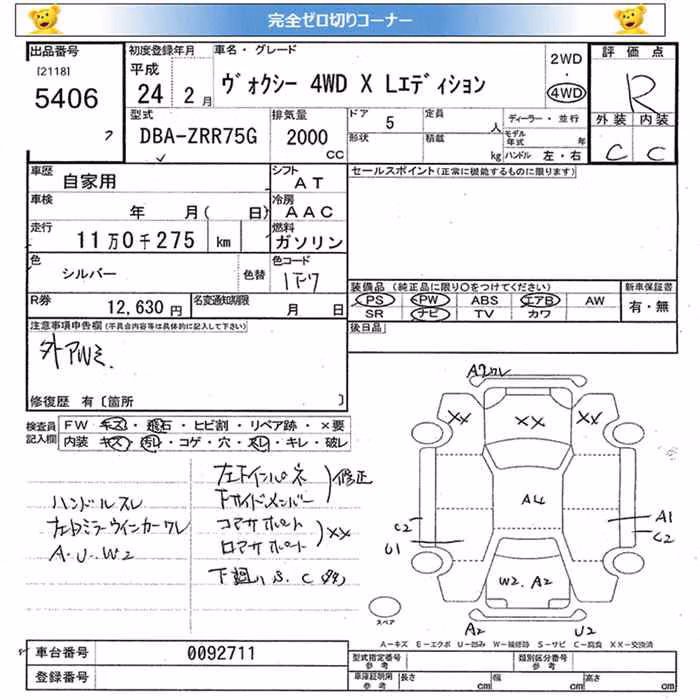 完全ゼロ切りコーナー
出品番号 初度登録年月 車名・グレード 評価点
[2118] 平成 2WD
5406 24 2月 ヴォクシー 4WD X Lエディション ・ R
7 4WD
型式 排気量 ドア 5 定員 人 ディーラー・並行 外装 内装
DBA-ZRR75G 2000 CC 形状 積載 kg モデル年式 年 C C
ハンドル 左・右
車歴 自家用 シフト AT セールスポイント(正常に機能するものに限ります)
車検 年 月( 日) 冷房 AAC
走行 11万0千275 km 燃料 ガソリン
色 シルバー 色替 色コード 1F7 装備品(純正品に限り○をつけてください) 新車保証書
PS PW ABS エアB AW 有・無
R券 12,630円 名変通知期限 月 日 SR ナビ TV カワ
注意事項申告欄(不具合内容等は具体的に記入して下さい) 後日品
外アルミ.
修復歴 有〔箇所 〕
検査員記入欄 FW キズ・飛石・ヒビ割・リペア跡・×要
内装 キズ・汚レ・コゲ・穴・スレ・キレ・破レ
ハンドルスレ
左ドアミラーウインカーワレ
A・U・W2
左下インパネ
下サイドメンバー
修正
コアサポート
ロアサポート
XX
下廻りS.C(多)
Aワレ
XX XX XX
A4
C2 A1
U1 C2
W2.A2
スペア A2 U2
A-キズ E-エクボ U-凹み W-補修跡 S-サビ C-腐食 XX-交換済
車台番号 0092711 型式指定番号参考 類別区分番号参考
登録番号 車庫証明用参考 長さ cm 幅 cm 高さ cm